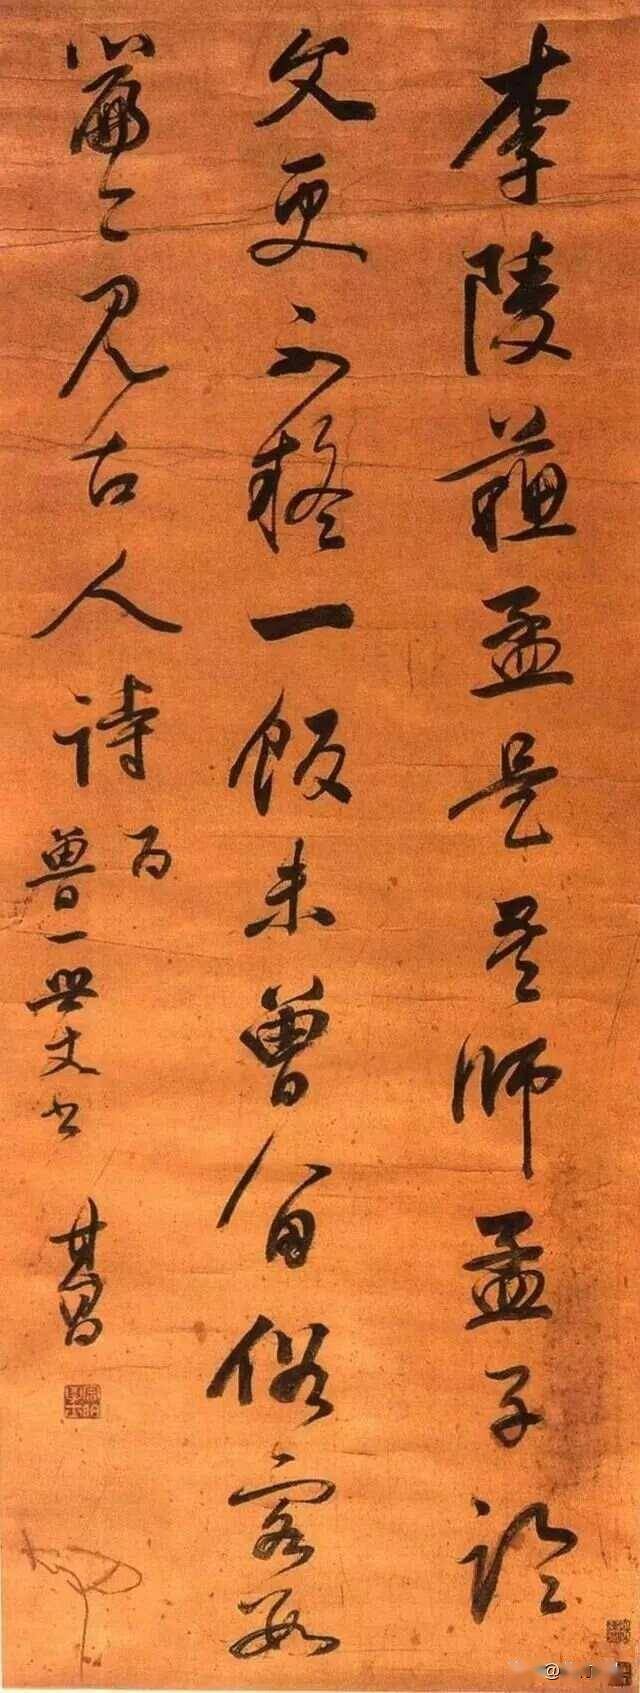 李陵蘇孟是吾師孟子論
文更不疑一飯未曾留俗客數
篇今見古人詩 為
魯一世丈書 其昌